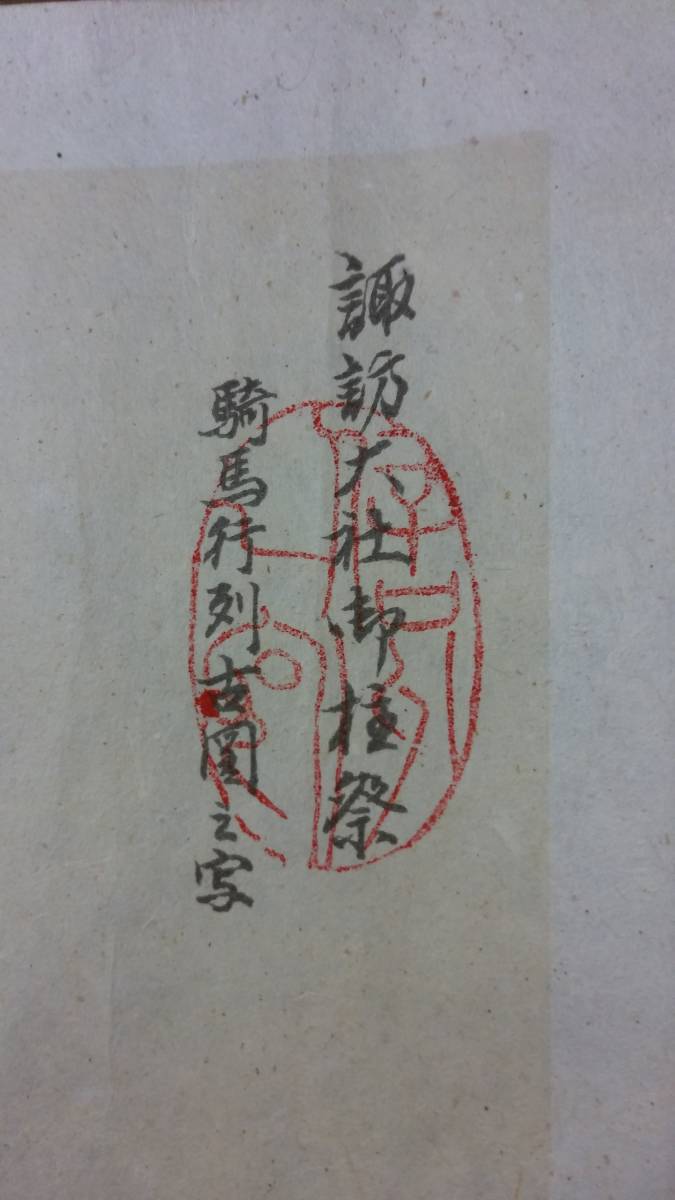 諏訪大社御柱祭
騎馬行列古圖之写